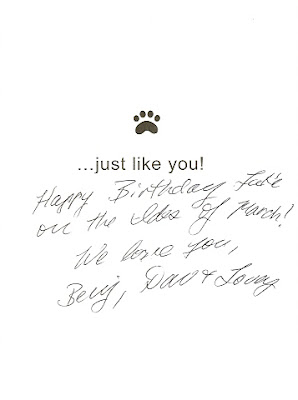 ...just like you!
Happy Birthday
on the Ides of March!
We love you,
Benj, Dav &